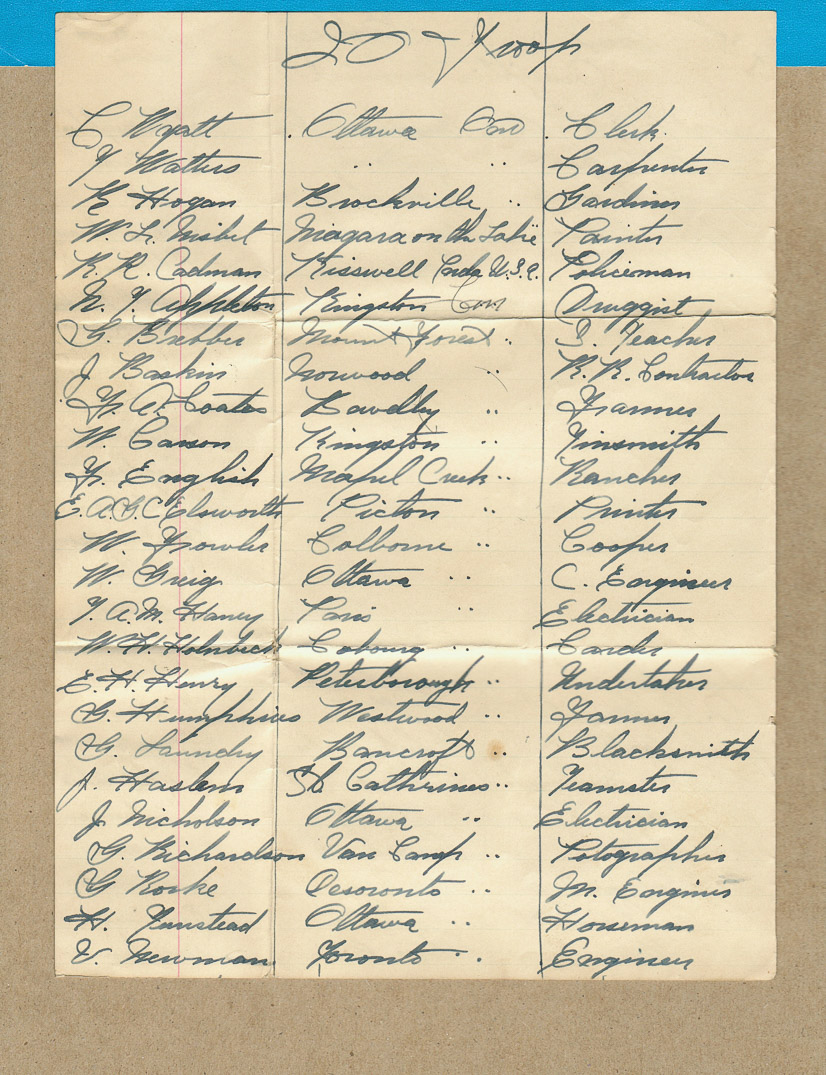 D Troop
C Wyatt Ottawa Ont Clerk
T Watters " " Carpenter
K Hogan Brockville " Gardiner
W. L. Nisbet Niagara on the Lake Painter
R. R. Cadman Kisswell U.S.A. Policeman
N. T. Appleton Kingston Ont Druggist
G. Brebber Mount Forest " S. Teacher
J Baskin Norwood " R. R. Contractor
A. Coates " Farmer
W. Carson Kingston " Tinsmith
F. English Mapel Creek " Rancher
E. A. G. C Elsworth Picton " Printer
W. Fowler Colborne " Cooper
W. Greig Ottawa " C. Engineer
T. A. M. Haney Paris " Electrician
W. H. Holnbeck Cobourg " Carder
E. H. Henry Peterborough " Undertaker
G. Humphries Westwood " Farmer
G. Laundry Bancroft " Blacksmith
J. Haslem St Cathrines " Teamster
J. Nicholson Ottawa " Electrician
G. Richardson Van Camp " Potographer
G Rorke Desoronto " M. Enginer
H. Ottawa " Horseman
V. Newman Toronto " Engineer